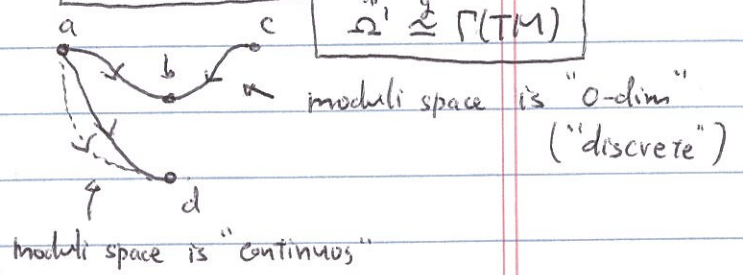 Ω¹ ≅ᵍ Γ(TM)
a c
b
moduli space is "0-dim"
("discrete")
d
moduli space is "continuos"